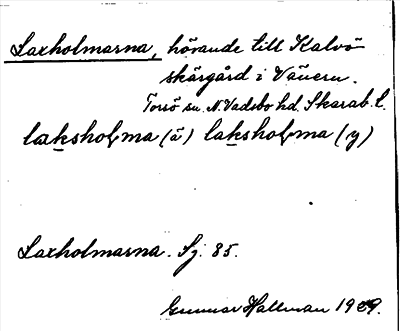 Laxholmarna, hörande till Kalvö
skärgård i Vänern.
Torsö sn. N. Vadsbo hd. Skarab. l.
laksholma (ä) laksholma (y)
Laxholmarna. Sj. 85.
Gunnar Hallman 19